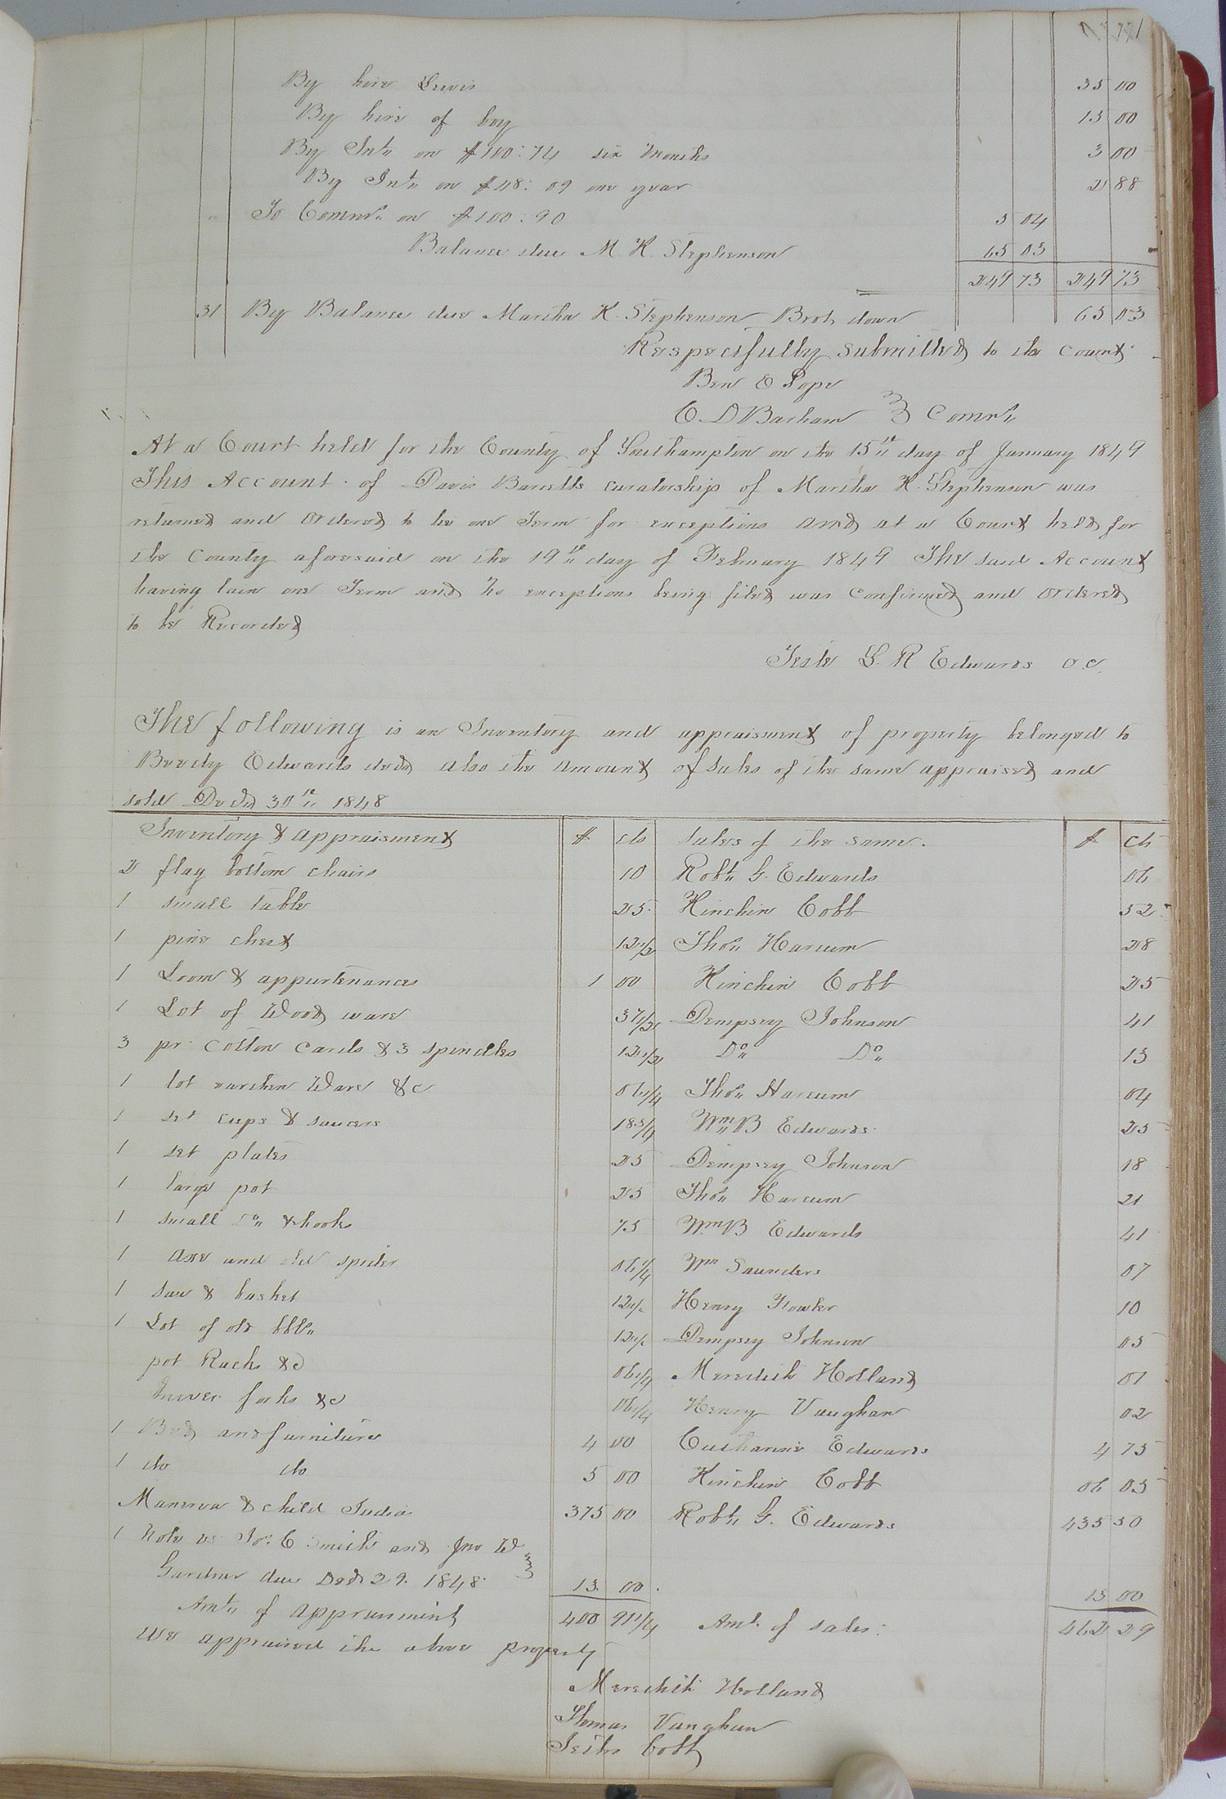 By hire Lewis 35 00
By hire of boy 15 00
By Intt on $100:74 six months 3 00
By Intt on $48:09 one year 2 88
To Commn on $100.90 5 04
Balance due M. H. Stephenson 65 03
249 73 249 73
31 By Balance due Martha H. Stephenson Brot down 65 03
Respectfully submitted to the court
Ben E Pope
C. D Barham } Comrs
At a Court held for the County of Southampton on the 15th day of January 1849
This Account of Davis Barretts curatorship of Martha H. Stephenson was
returned and ordered to lie one Term for exceptions and at a Court held for
the County aforesaid on the 19th day of February 1849 The said Account
having lain one Term and no exceptions being filed was confirmed and ordered
to be Recorded
Teste L. R Edwards C.C.
The following is an Inventory and appraisment of property belonged to
Beverly Edwards decd also the amount of sales of the same appraised and
sold Decr 30th 1848
Inventory & appraisment $ cts Sales of the same. $ cts
2 flag bottom chairs 10 Robt G. Edwards 06
1 small table 25 Hinchin Cobb 52
1 pine chest 12 1/2 Thos Harcum 28
1 Loom & appurtenances 1 00 Hinchin Cobb 25
1 Lot of Wood ware 37 1/2 Dempsey Johnson 41
3 pr. cotton cards & 3 spindles 12 1/2 Do Do 13
1 lot earthen Ware &c 06 1/4 Thos Harcum 04
1 set cups & saucers 18 3/4 Wm B Edwards 25
1 set plates 25 Dempsey Johnson 18
1 large pot 25 Thos Harcum 21
1 small Do & hooks 75 Wm B Edwards 41
1 axe and old spider 06 1/4 Wm Saunders 07
1 saw & basket 12 1/2 Henry Fowler 10
1 Lot of old bbls 12 1/2 Dempsey Johnson 05
pot Racks &c 06 1/4 Meredith Holland 01
forks &c 06 1/4 Henry Vaughan 02
1 Bed and furniture 4 00 Catharine Edwards 4 75
1 do do 5 00 Hinchin Cobb 06 05
Manerva & child Judia 375 00 Robt G. Edwards 435 50
1 Note vs Jos: C Smith and Jno W
Gardner due Decr 29. 1848 } 13 00 13 00
Amt of appraisment 400 91 1/4 Amt. of sales: 462 29
We appraised the above property
Meredith Holland
Thomas Vaughan
Cobb